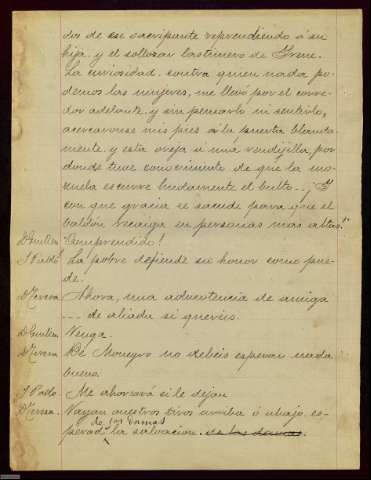 dos de ese sacripante reprendiendo á su
hija y el sollozar lastimero de Irene.
La curiosidad contra quien nada po-
demos las mujeres, me llevó por el corre-
dor adelante y sin pensarlo ni sentirlo,
acercaronse mis pies á la puerta blanda-
mente y esta oreja á una rendijilla, por
donde tuve conocimiento de que la mo-
zuela escurre lindamente el bulto... ¡Y
con que gracia se sacude para que el
baldón recaiga en personas mas altas!
D. Guillen Comprendido!
D. Pablo La pobre defiende su honor como pue-
de.
Dª Teresa Ahora, una advertencia de amiga
... de aliada si quereis.
D. Guillen Venga.
Dª Teresa De Moneyro no debeis esperar nada
bueno.
D. Pablo Me ahorcará si le dejan
Dª Teresa Vayan vuestros tiros arriba ó abajo. es-
de las damas
perad la salvacion de las damas.